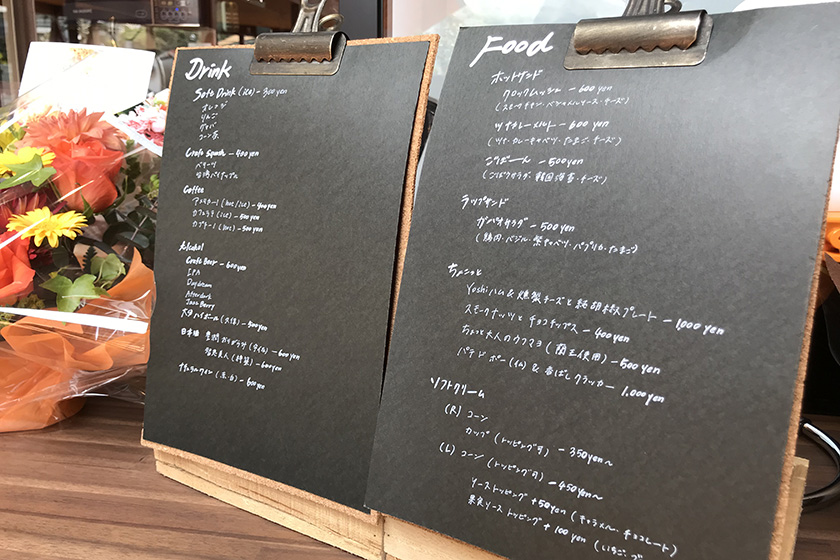 Drink
Soft Drink (ice) - 300yen
オレンジ
りんご
グァバ
コーン茶
Craft Squash - 400yen
ベリーツ
台湾パイナップル
Coffee
アメリカーノ (hot / ice) - 400yen
カフェラテ (ice) - 500yen
カプチーノ (hot) - 500yen
Alcohol
Craft Beer - 600yen
IPA
Daydream
Afterdark
Jazz Berry
大分ハイボール - 500yen
日本酒
智恵美人 - 600yen
ナチュラルワイン (赤・白) - 600yen
Food
ホットサンド
クロックムッシュ - 600yen
(スモークチキン・ベシャメルソース・チーズ)
ツナカレーメルト - 600yen
(ツナ・カレーキャベツ・たまご・チーズ)
こりぱーん - 500yen
(ごぼうサラダ・韓国海苔・チーズ)
ラップサンド
ガパオサラダ - 500yen
(鶏肉・バジル・紫キャベツ・パプリカ・たまご)
ちょこっと
Yoshiハム & 燻製チーズと純胡椒プレート - 1,000yen
スモークナッツとチョコチップス - 400yen
ちょっと大人のウフマヨ (蘭王使用) - 500yen
パテドポー & 香ばしクラッカー - 1,000yen
ソフトクリーム
(R) コーン
カップ (トッピング可) - 350yen~
(L) コーン (トッピング可) - 450yen~
ソーストッピング +50yen (キャラメル・チョコレート)
果実ソーストッピング +100yen (いちご・